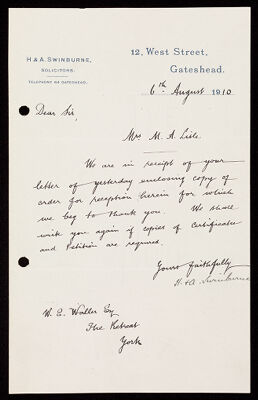 H & A. SWINBURNE,
SOLICITORS.
TELEPHONE 114 GATESHEAD.
12, West Street,
Gateshead.
6th August 1910
Dear Sir,
Mrs M. A. Lisle.
We are in receipt of your
letter of yesterday enclosing copy of
order for reception herein for which
we beg to thank you. We shall
write you again if copies of Certificates
and Petition are required.
Yours faithfully
H & A. Swinburne
W. E. Waller Esq
The Retreat
York